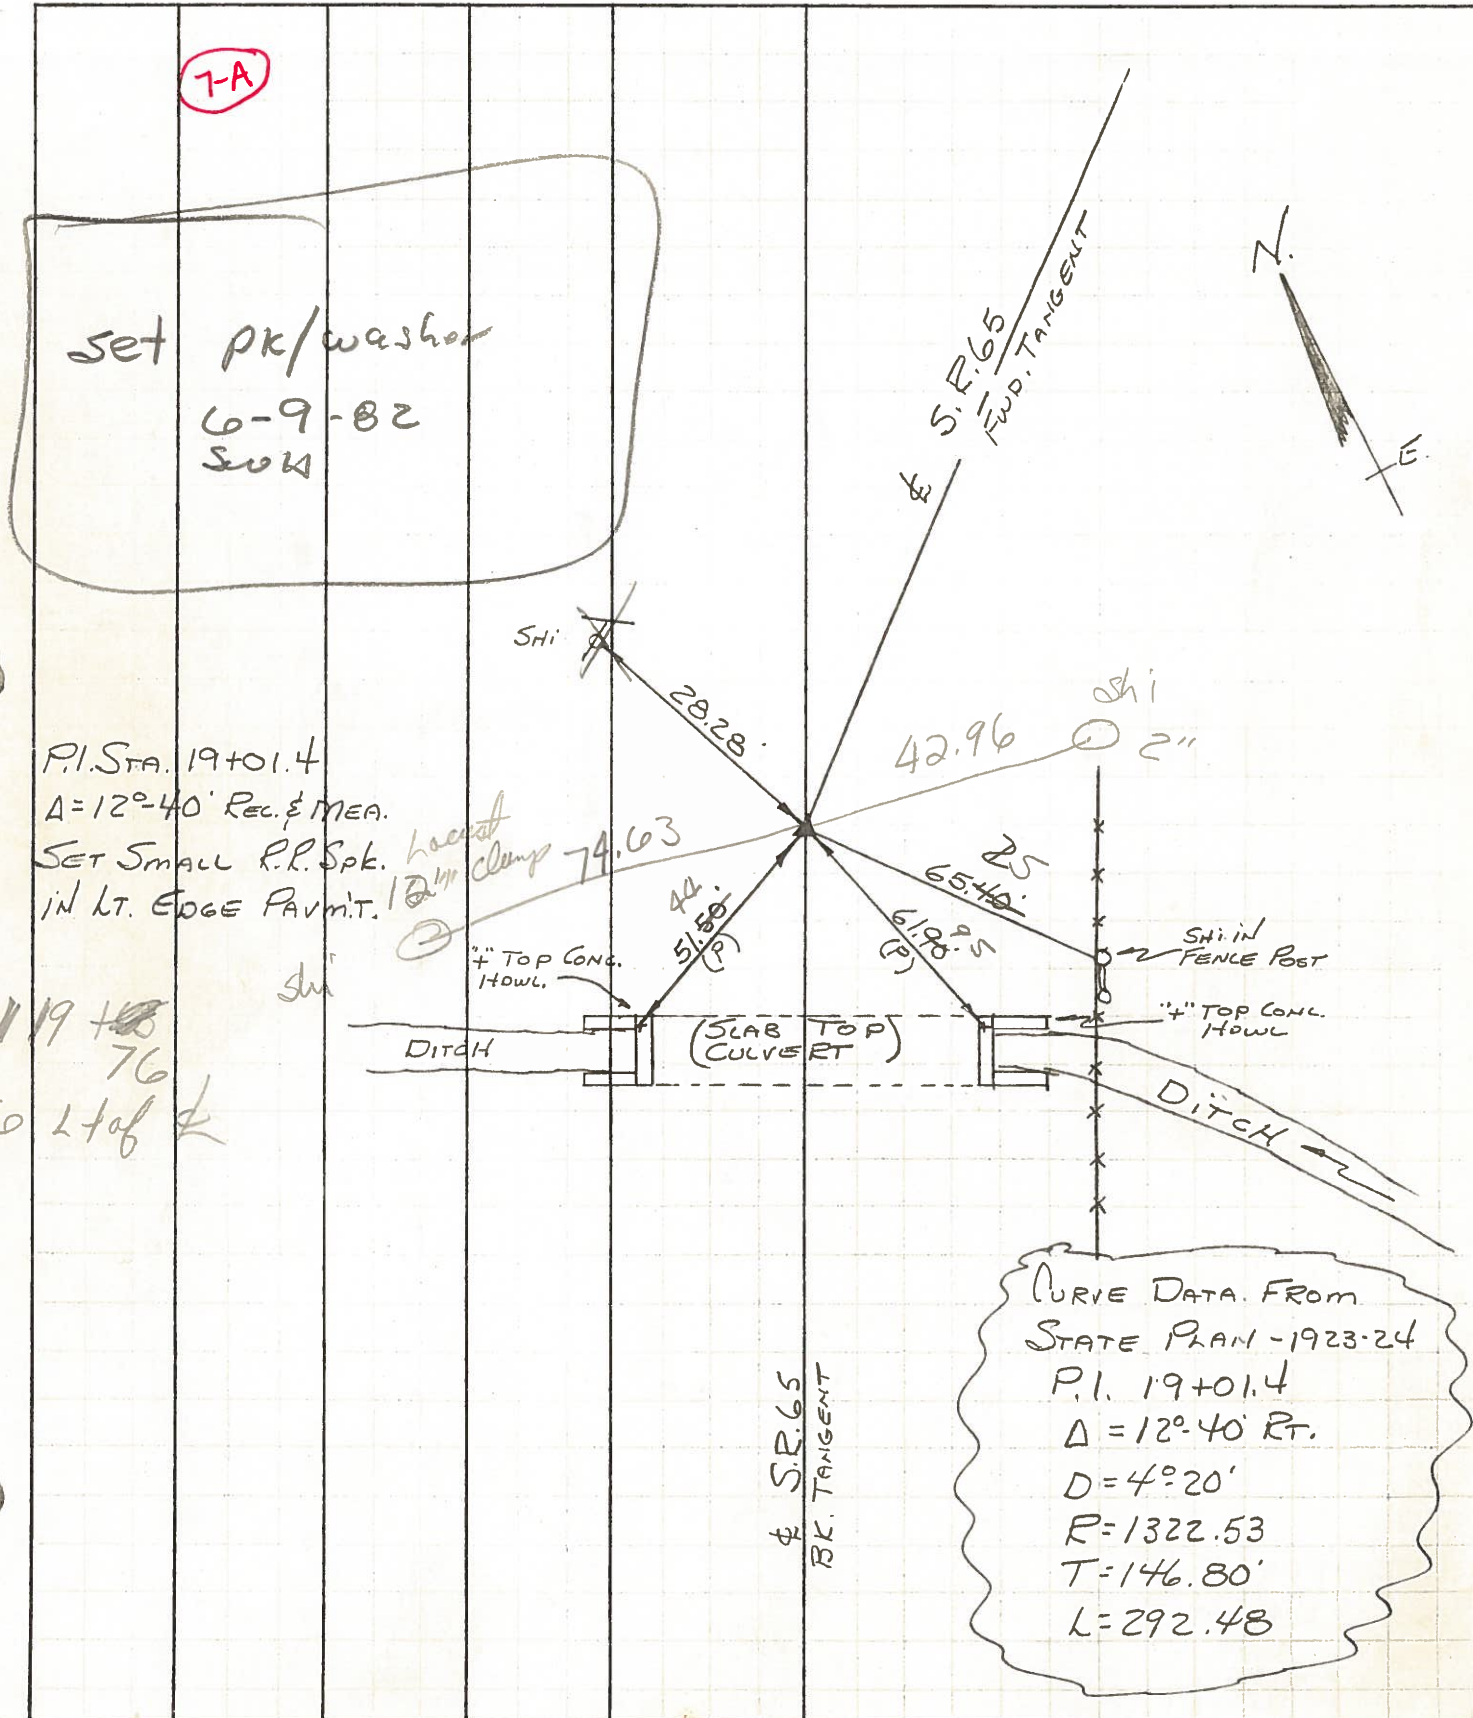 7-A
set pk/washer
6-9-82
N.
E.
S.R.65
FWD. TANGENT
℄
SHI
28.28'
shi
42.96
2"
P.I. STA. 19+01.4
Δ=12°-40' REC. & MEA.
SET SMALL R.R. SPK.
IN LT. EDGE PAVM'T.
Locust
12" Clump 74.63
shi
44
51.50'
(P)
61.90
.95
(P)
25
65.40'
SHI. IN
FENCE POST
"+" TOP CONC.
HDWL.
"+" TOP CONC.
HDWL
19+
76
Lt of ℄
DITCH
(SLAB TOP
CULVERT)
DITCH
℄ S.R.65
BK. TANGENT
CURVE DATA FROM
STATE PLAN-1923-24
P.I. 19+01.4
Δ = 12°-40' RT.
D = 4°20'
R = 1322.53
T = 146.80'
L = 292.48